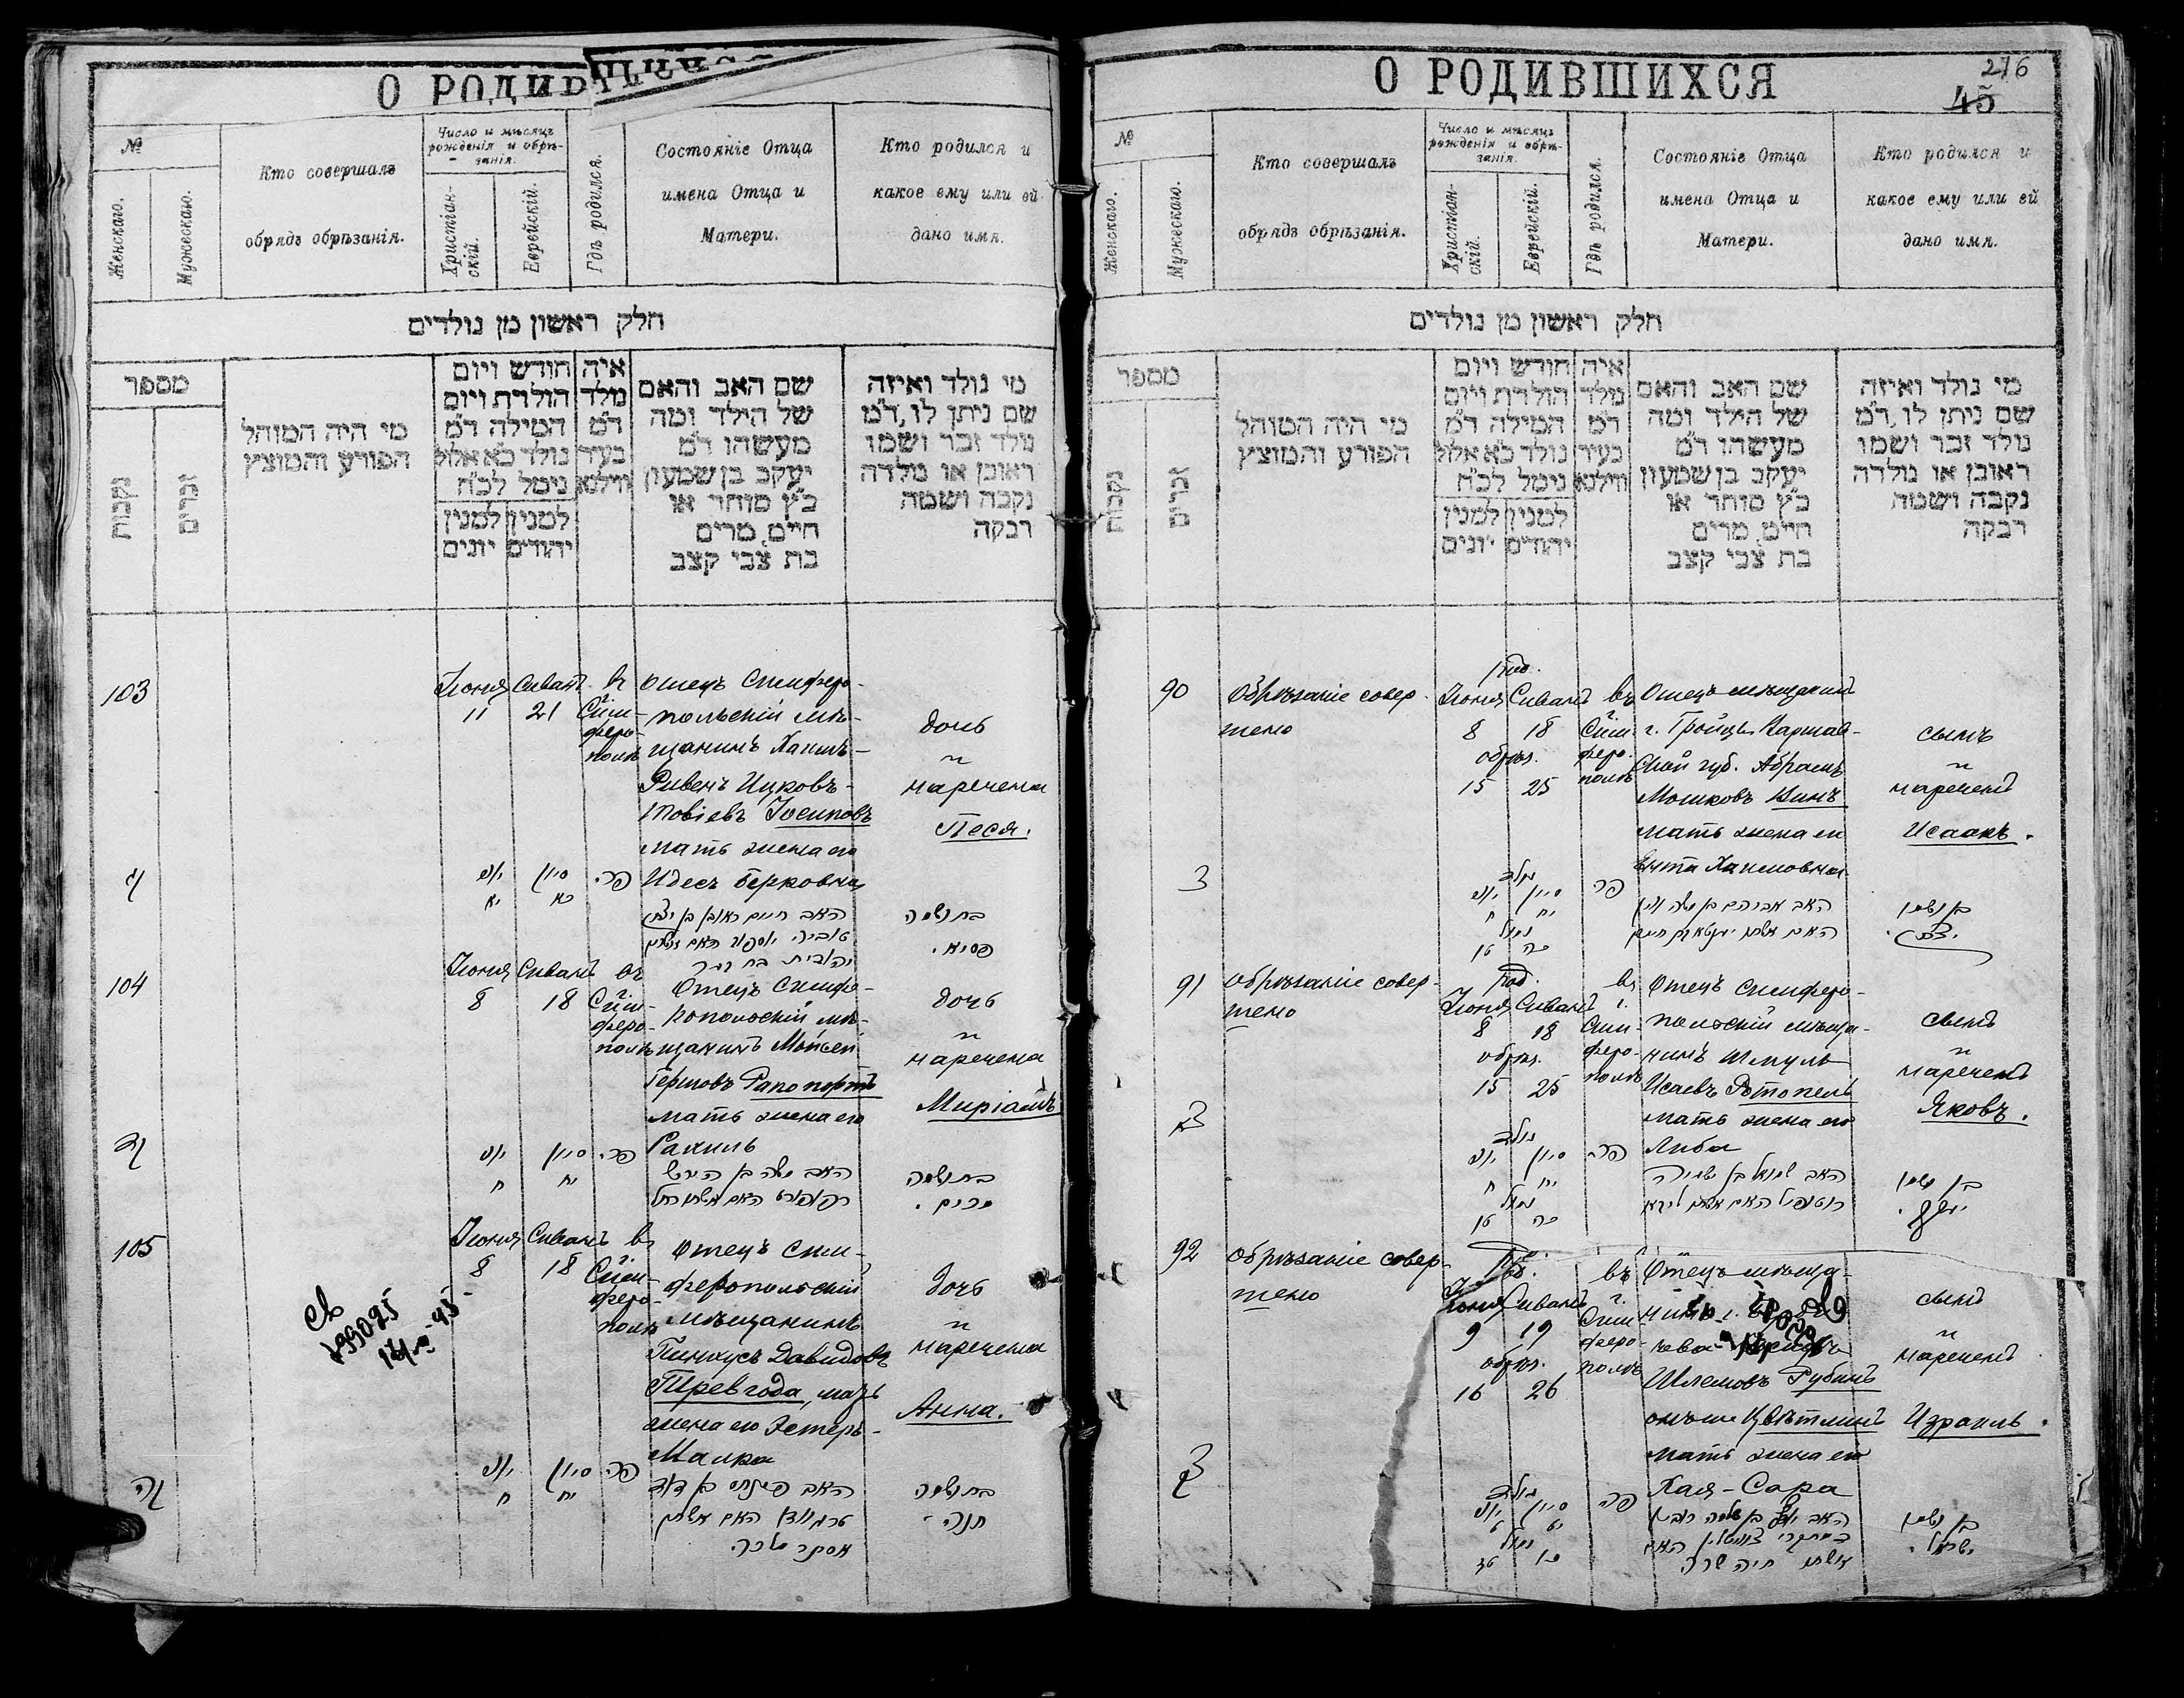 О РОДИВ
№
Женскаго.
Мужескаго.
Кто совершалъ
обрядъ обрѣзанія.
Число и мѣсяцъ
рожденія и обрѣ-
занія.
Христіан-
скій.
Еврейскій.
Гдѣ родился.
Состояніе Отца
имена Отца и
Матери.
Кто родился и
какое ему или ей
дано имя.
חלק ראשון מן נולדים
מספר
נקבות
זכרים
מי היה המוהל
הפורע והמוצץ
חודש ויום
הולדת ויום
המילה ד״מ
נולד כ׳א אלול
נימל לכ״ח
למנין למנין
יהודים יונים
איה
נולד
ד״מ
בעיר
ווילנא
שם האב והאם
של הילד ומה
מעשהו ד״מ
יעקב בן שמעון
כ״ץ סוחר או
חיים, מרים
בת צבי קצב
מי נולד ואיזה
שם ניתן לו, ד״מ
נולד זכר ושמו
ראובן או נולדה
נקבה ושמה
רבקה
103
Іюня Сиванъ
11 21
Сим-
феро-
полѣ
Отецъ Симферо-
польскій мѣ-
щанинъ Хаимъ-
Рувенъ Ицковъ-
Товіевъ Іосиповъ
мать жена его
Идесъ Берковна
дочь
и
наречена
Песя.
סיון
יא כא
האב חיים ראובן בן יצחק
בת ושמה
פסיא.
104
Іюня Сиванъ въ
8 18
Сим-
феро-
полѣ
Отецъ Симфе-
ропольскій мѣ-
щанинъ Мойсей
Гершовъ Рапопортъ
мать жена его
Рахиль
дочь
и
наречена
Миріамъ
סיון
ח יח
האב משה בן הירש
ראפאפורט האם אשתו רחל
בת ושמה
מרים.
105
Іюня Сиванъ
8 18
Сим-
феро-
полѣ
Отецъ Сим-
феропольскій
мѣщанинъ
Пинхусъ Давидовъ
Тревгода, мать
жена его Эстеръ-
Малка
дочь
и
наречена
Анна.
סיון
ח יח
האב פינחס בן דוד
האם אשתו
אסתר מלכה.
בת ושמה
חנה
О РОДИВШИХСЯ
276
45
№
Женскаго.
Мужескаго.
Кто совершалъ
обрядъ обрѣзанія.
Число и мѣсяцъ
рожденія и обрѣ-
занія.
Христіан-
скій.
Еврейскій.
Гдѣ родился.
Состояніе Отца
имена Отца и
Матери.
Кто родился и
какое ему или ей
дано имя.
חלק ראשון מן נולדים
מספר
נקבות
זכרים
מי היה המוהל
הפורע והמוצץ
חודש ויום
הולדת ויום
המילה ד״מ
נולד כ׳א אלול
נימל לכ״ח
למנין למנין
יהודים יונים
איה
נולד
ד״מ
בעיר
ווילנא
שם האב והאם
של הילד ומה
מעשהו ד״מ
יעקב בן שמעון
כ״ץ סוחר או
חיים, מרים
בת צבי קצב
מי נולד ואיזה
שם ניתן לו, ד״מ
נולד זכר ושמו
ראובן או נולדה
נקבה ושמה
רבקה
90
Обрѣзаніе совер-
шено
род.
Іюня Сиванъ
8 18
обрѣз.
15 25
въ
Сим-
феро-
полѣ
Отецъ мѣщанинъ
г. Гройцы Варшав-
ской губ. Абрамъ
Мошковъ Винъ
мать жена его
Ента Хаимовна
сынъ
и
нареченъ
Исаакъ.
סיון
ח יח
כה
האב אברהם בן משה
בן ושמו
יצחק.
91
Обрѣзаніе совер-
шено
род.
Іюня Сиванъ
8 18
обрѣз.
15 25
въ
г.
Сим-
феро-
полѣ
Отецъ Симферо-
польскій мѣща-
нинъ Шмуль
Исаевъ Ротопель
мать жена его
Либа
сынъ
и
нареченъ
Яковъ.
סיון
ח יח
כה
האב שמואל בן ישעיה
בן ושמו
יעקב.
92
Обрѣзаніе совер-
шено
род.
Іюня Сиванъ
9 19
обрѣз.
16 26
въ
г.
Сим-
феро-
полѣ
Отецъ мѣща-
Шлемовъ Рубинъ
онъ же Цвѣтлинъ
мать жена его
Хая-Сара
сынъ
и
нареченъ
Израиль.
סיון
ט יט
כו
האב יוסף בן שלמה רובין
האם
אשתו חיה שרה
בן ושמו
ישראל.